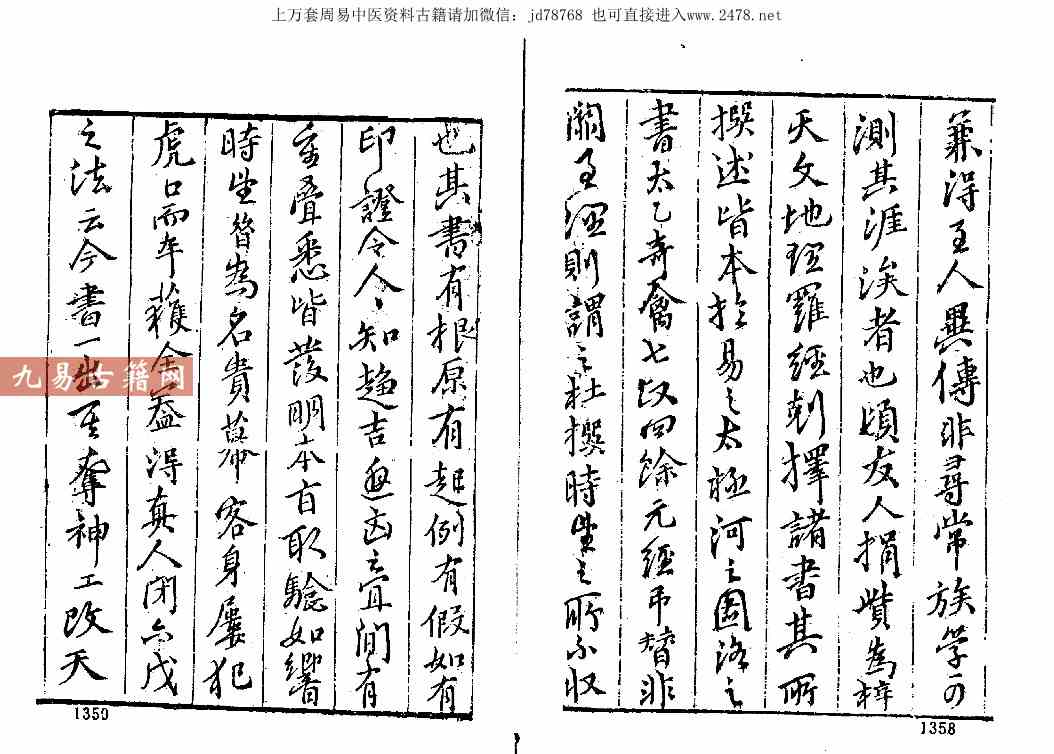 上万套周易中医资料古籍请加微信：jd78768 也可直接进入www.2478.net
兼得至人異傳非尋常族学可
測其涯涘者也頃友人捐貲為梓
天文地理羅經剋擇諸書其所
撰述皆本於易之太極河之圖洛之
書太乙奇禽七政四餘元經
關至經則謂之杜撰時師之所不收
1358
也其書有根原有起例有假如有
印證令人人知趨吉避凶之宜間有
重叠悉皆發明本旨取驗如響
時師皆為名貴幕客身屢犯
虎口而年獲全益得真人閉六戊
之法云今書一出至奪神工改天
1359
九易古籍网